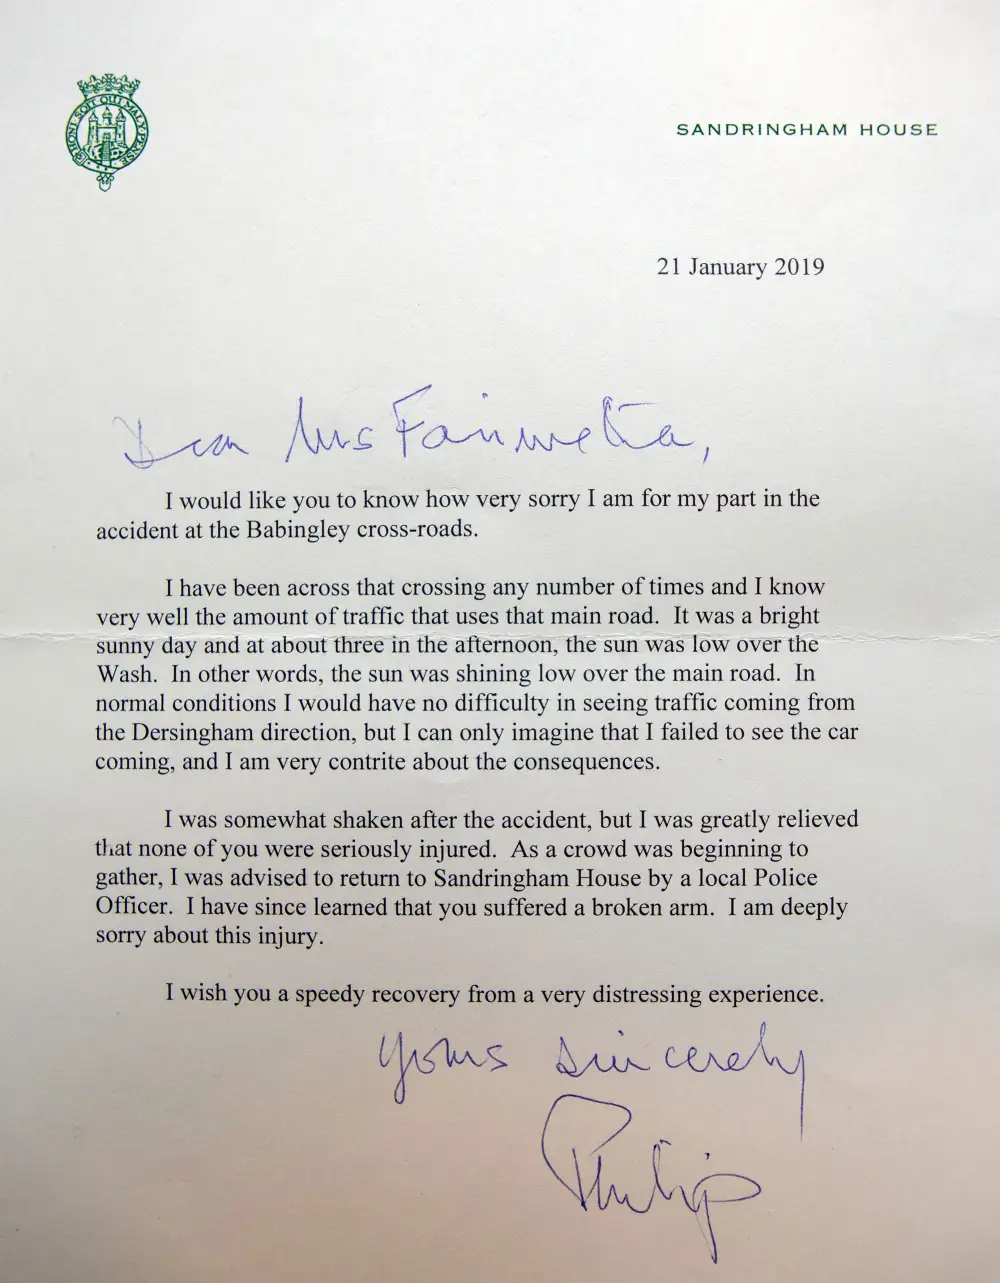 HONI SOIT QUI MAL Y PENSE
SANDRINGHAM HOUSE
21 January 2019
Dear Mrs Fairweather,
I would like you to know how very sorry I am for my part in the
accident at the Babingley cross-roads.
I have been across that crossing any number of times and I know
very well the amount of traffic that uses that main road. It was a bright
sunny day and at about three in the afternoon, the sun was low over the
Wash. In other words, the sun was shining low over the main road. In
normal conditions I would have no difficulty in seeing traffic coming from
the Dersingham direction, but I can only imagine that I failed to see the car
coming, and I am very contrite about the consequences.
I was somewhat shaken after the accident, but I was greatly relieved
that none of you were seriously injured. As a crowd was beginning to
gather, I was advised to return to Sandringham House by a local Police
Officer. I have since learned that you suffered a broken arm. I am deeply
sorry about this injury.
I wish you a speedy recovery from a very distressing experience.
Yours sincerely
Philip